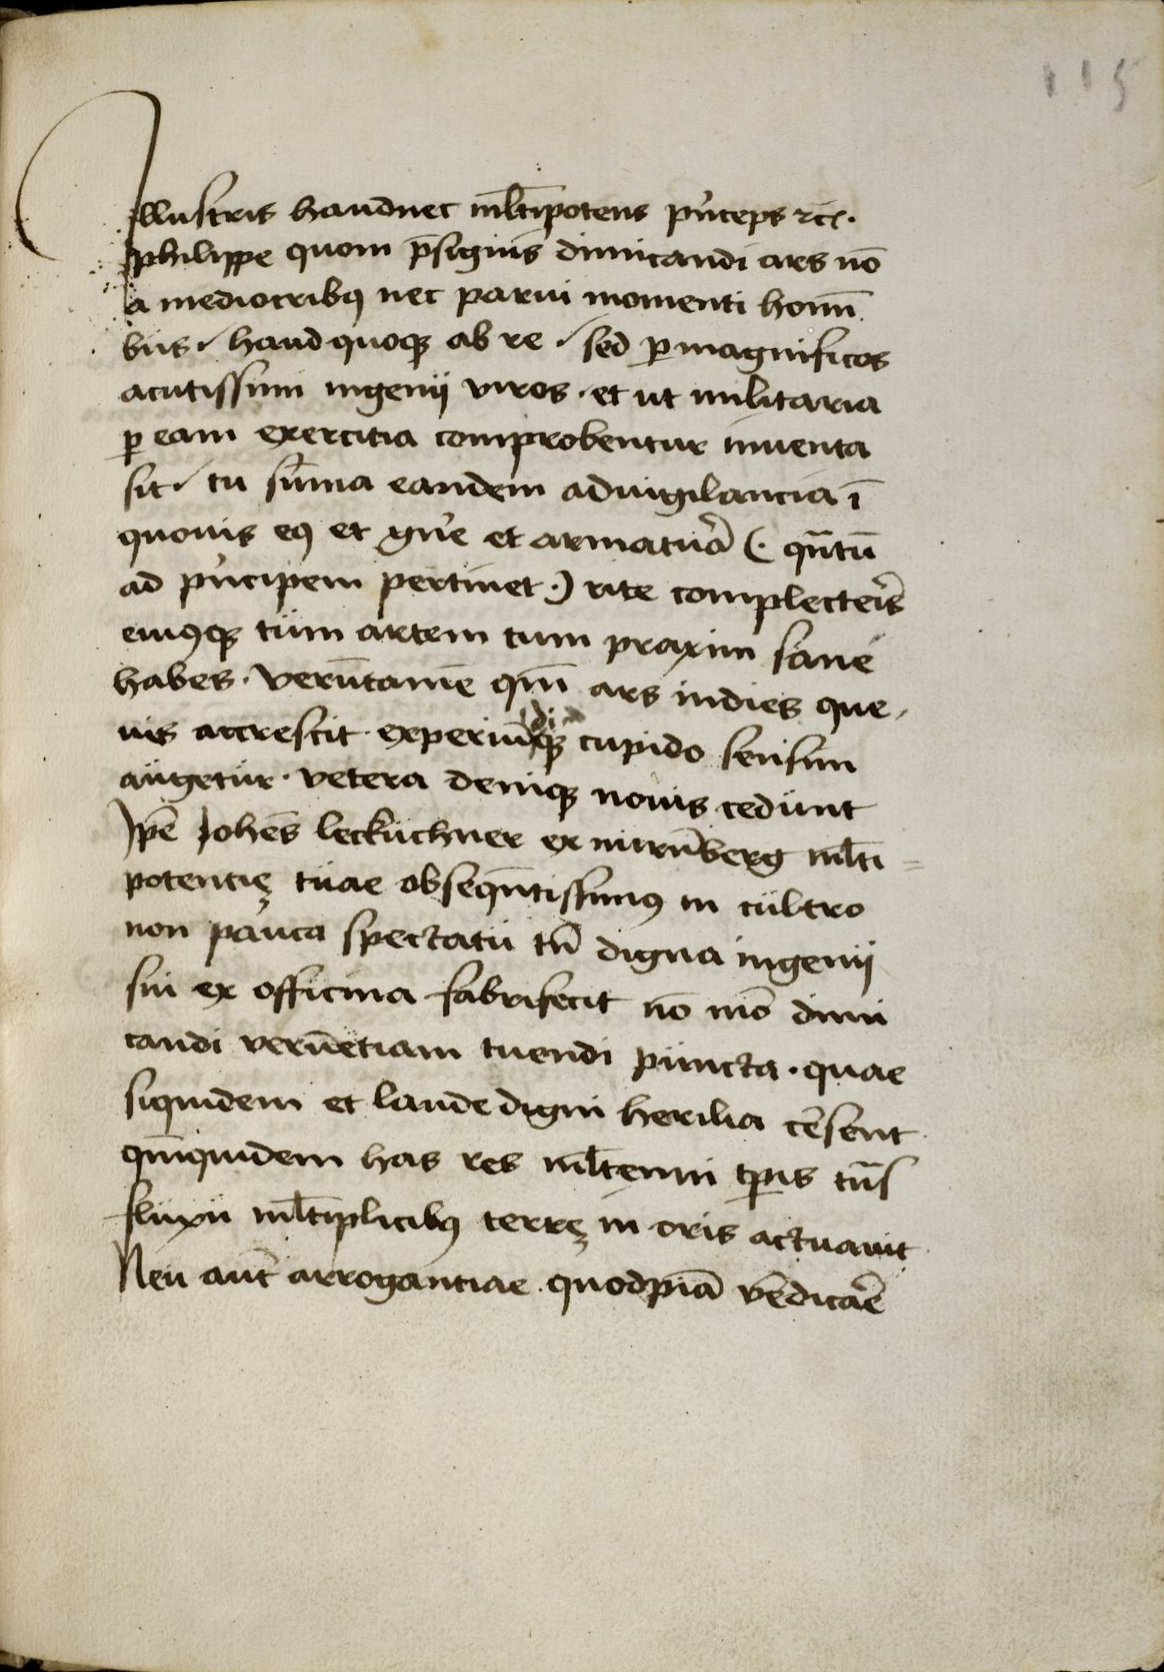 115
Illustris haudnec ml̅tipotens pͥnceps rc̅.
philippe quom p̅signis dimicandi ars no̅
a mediocribꝰ nec parui momenti homi̅
bus / haud quoqꝫ ab re / sed ꝑ magnificos
acutissimi ingenij viros · et ut militaria
ꝑ eam exercitia comprobentur inuenta
sit / tu su̅ma eandem aduigilancia i̅
quouis eqͦ et gn̅e et armatura (· qn̅tu̅
ad pͥncipem pertinet ·) rite complecteris
eiusqꝫ tum artem tum praxim sane
habes · Veru̅tame̅ qm̅ ars indies que
uis accrescit · experiu̅diqꝫ cupido sensim
augetur · vetera deniqꝫ nouis cedunt
Ip̅e Johe̅s leckuchner ex nuru̅berg ml̅ti
potentię tuae obseque̅tissimꝰ in cultro
non pauca spectatu tn̅ digna ingenij
sui ex officina fabrifecit no̅ mo̅ dimi
candi veru̅etiam tuendi puncta · quae
siquidem et laude digni herilia ce̅sent
qm̅quidem has res ml̅tenni tp̅is
fluxu ml̅tiplicibꝰ terrę in oris actuauit
Neu aut̅ arrogantiae quodpia̅ ve̅dicare̅